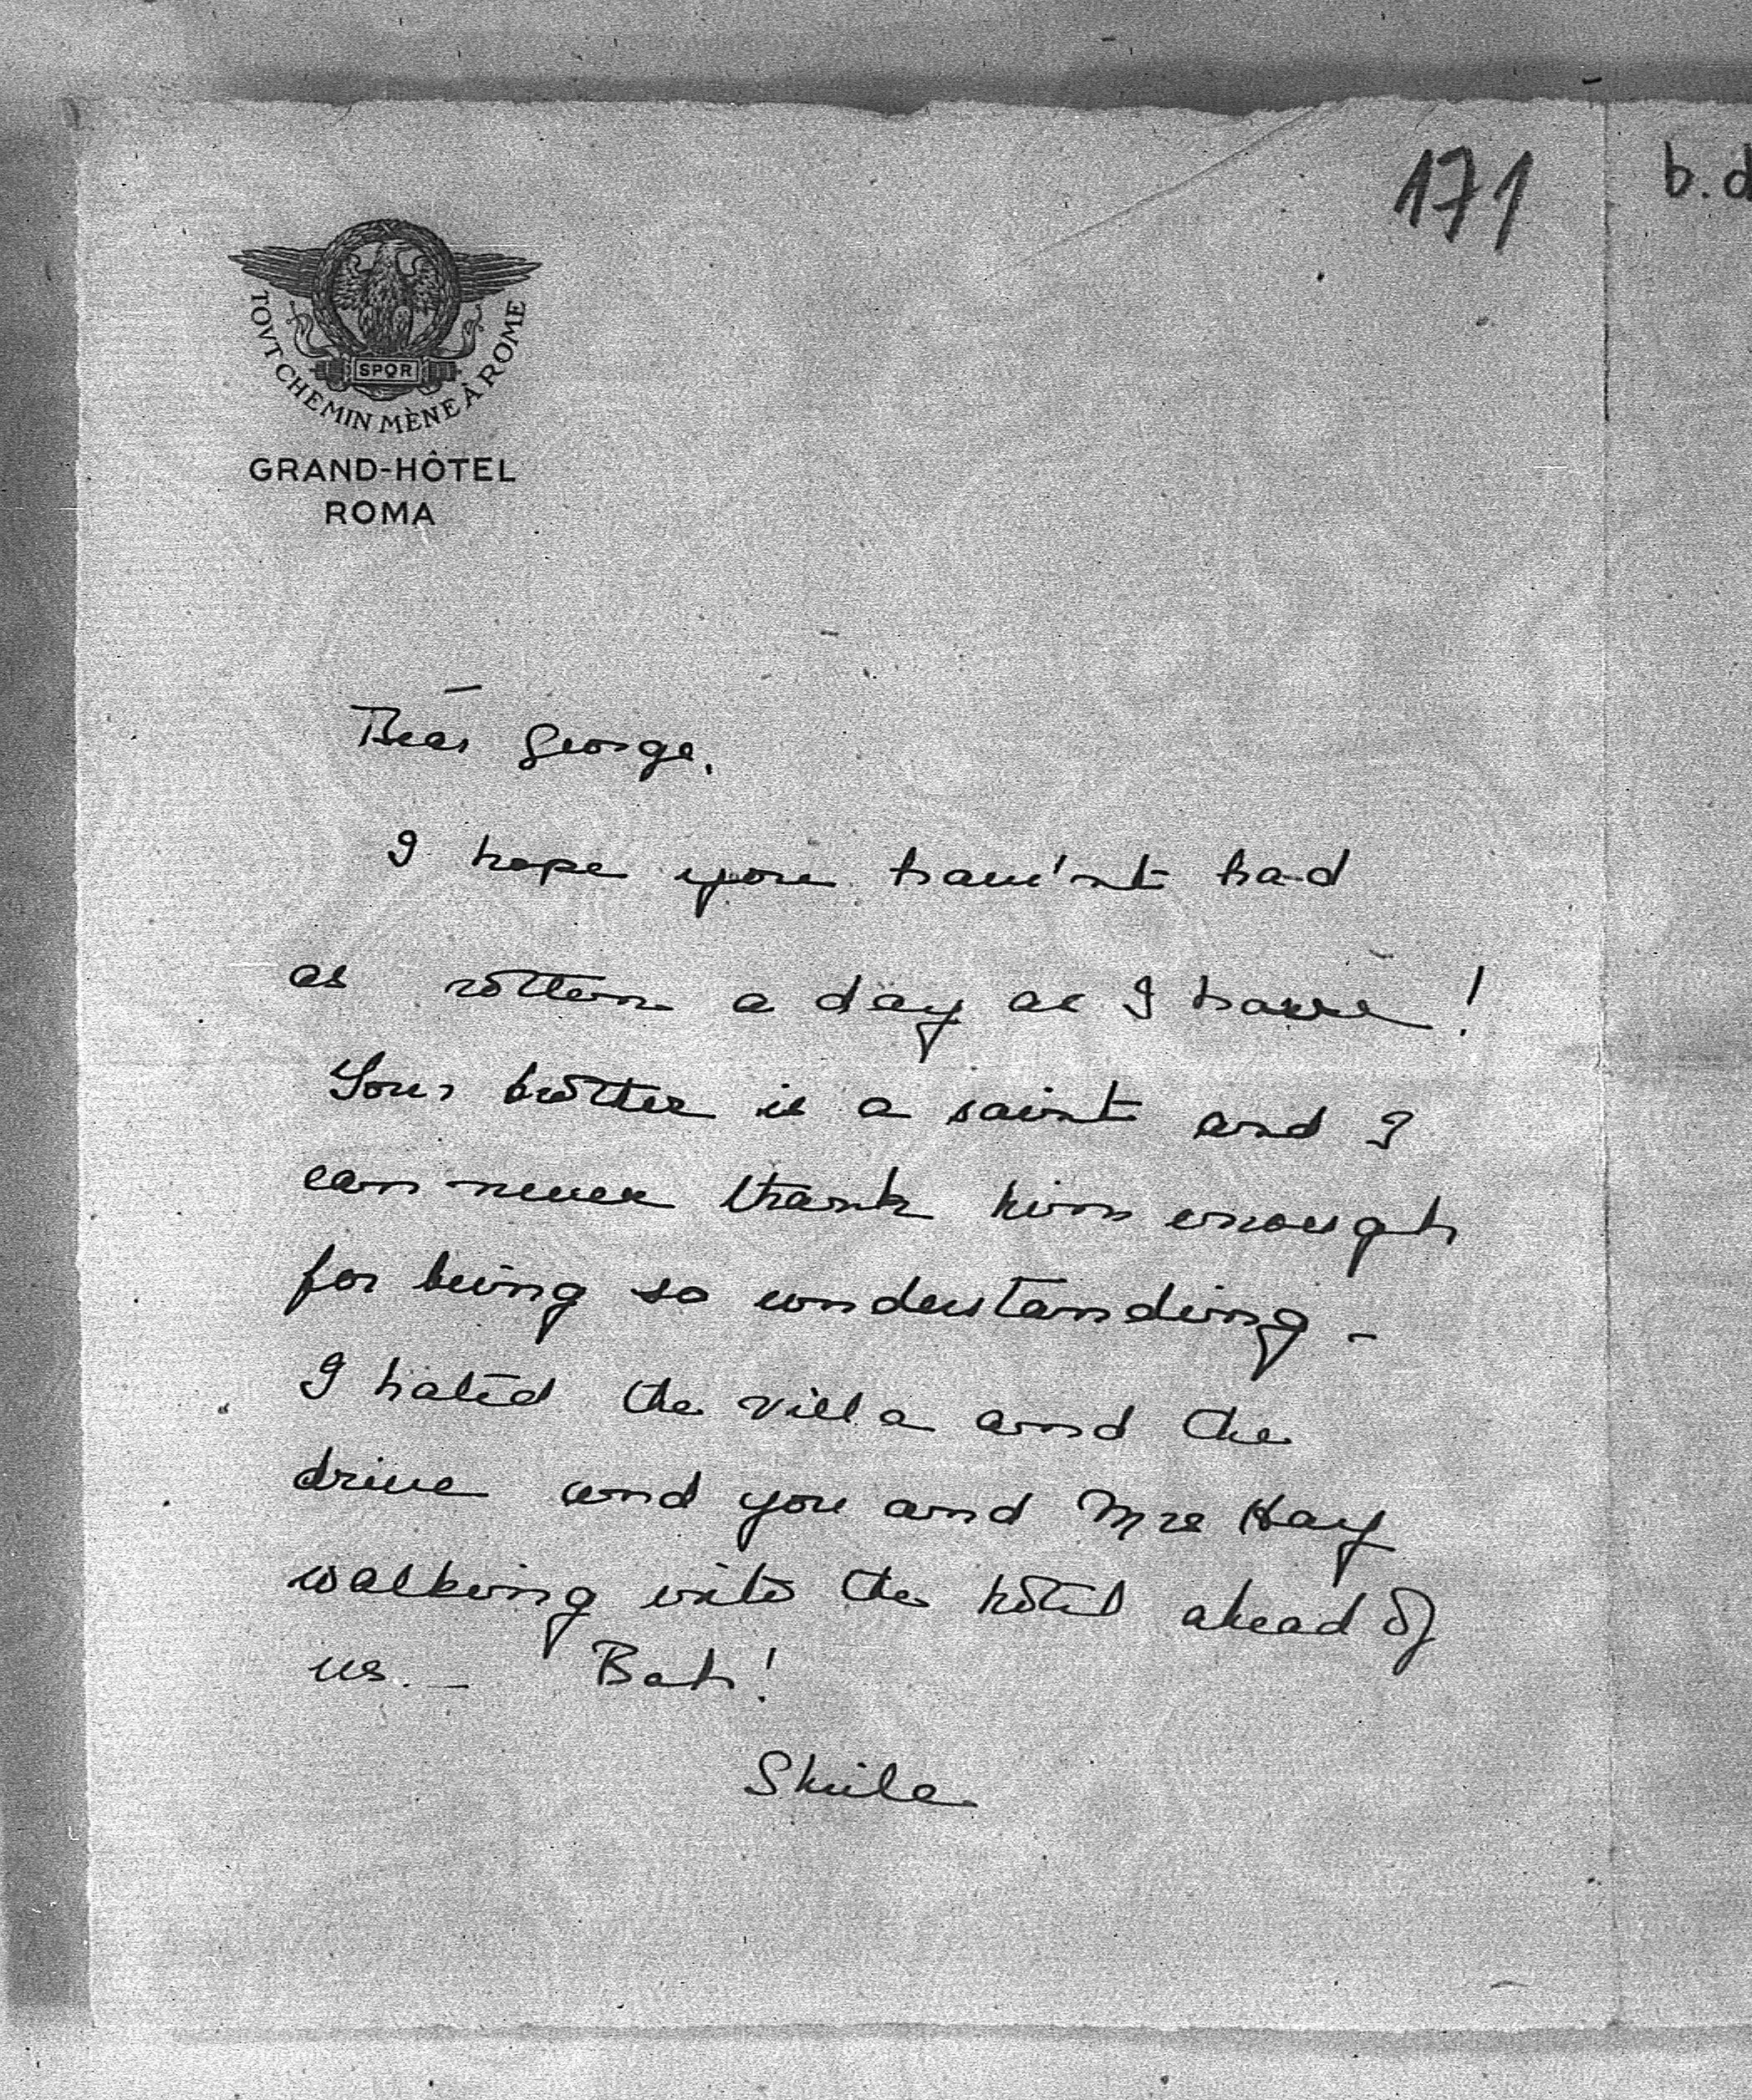 171
b.d
TOVT CHEMIN MÈNE À ROME
SPQR
GRAND-HÔTEL
ROMA
Dear George.
I hope you have'nt had
as rotten a day as I have !
Your brother is a saint and I
can never thank him enough
for being so understanding -
I hated the villa and the
drive and you and Mrs Hay
walking into the hotel ahead of
us. - Bah!
Sheila